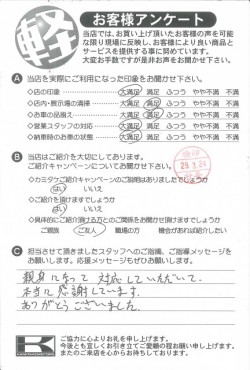 軽
お客様アンケート
当店では、お買い上げ頂いたお客様の声を可能
な限り現場に反映し、お客様により良い商品と
サービスを提供する事に努めています。
大変お手数ですが是非お声をお聞かせ下さい。
A 当店を実際にご利用になった印象をお聞かせ下さい。
◇店の印象 大満足 満足 ふつう やや不満 不満
◇店内・展示場の清掃 大満足 満足 ふつう やや不満 不満
◇お車の品揃え 大満足 満足 ふつう やや不満 不満
◇営業スタッフの対応 大満足 満足 ふつう やや不満 不満
◇納車時のお車の状態 大満足 満足 ふつう やや不満 不満
B 当店はご紹介を大切にしております。
ご紹介キャンペーンについてお聞かせ下さい。
◇カミタケご紹介キャンペーンのご説明はありましたでしょうか
はい いいえ
◇ご紹介を頂けますでしょうか
はい いいえ
◇具体的にご紹介頂ける方とのご関係をお聞かせ頂けますでしょうか
ご親族 ご友人 職場の方 機会があれば紹介したい
C 担当させて頂きましたスタッフへのご指摘、ご指導メッセージを
お願いします。応援メッセージもぜひお願いします。
親身になって対応していただいて、
本当に感謝しています。
ありがとうございました。
K
ご協力に心よりお礼を申し上げます。
今後とも宜しくお引き立てご愛顧の程お願い申し上げます。
またのご来店を心からお待ちしております。